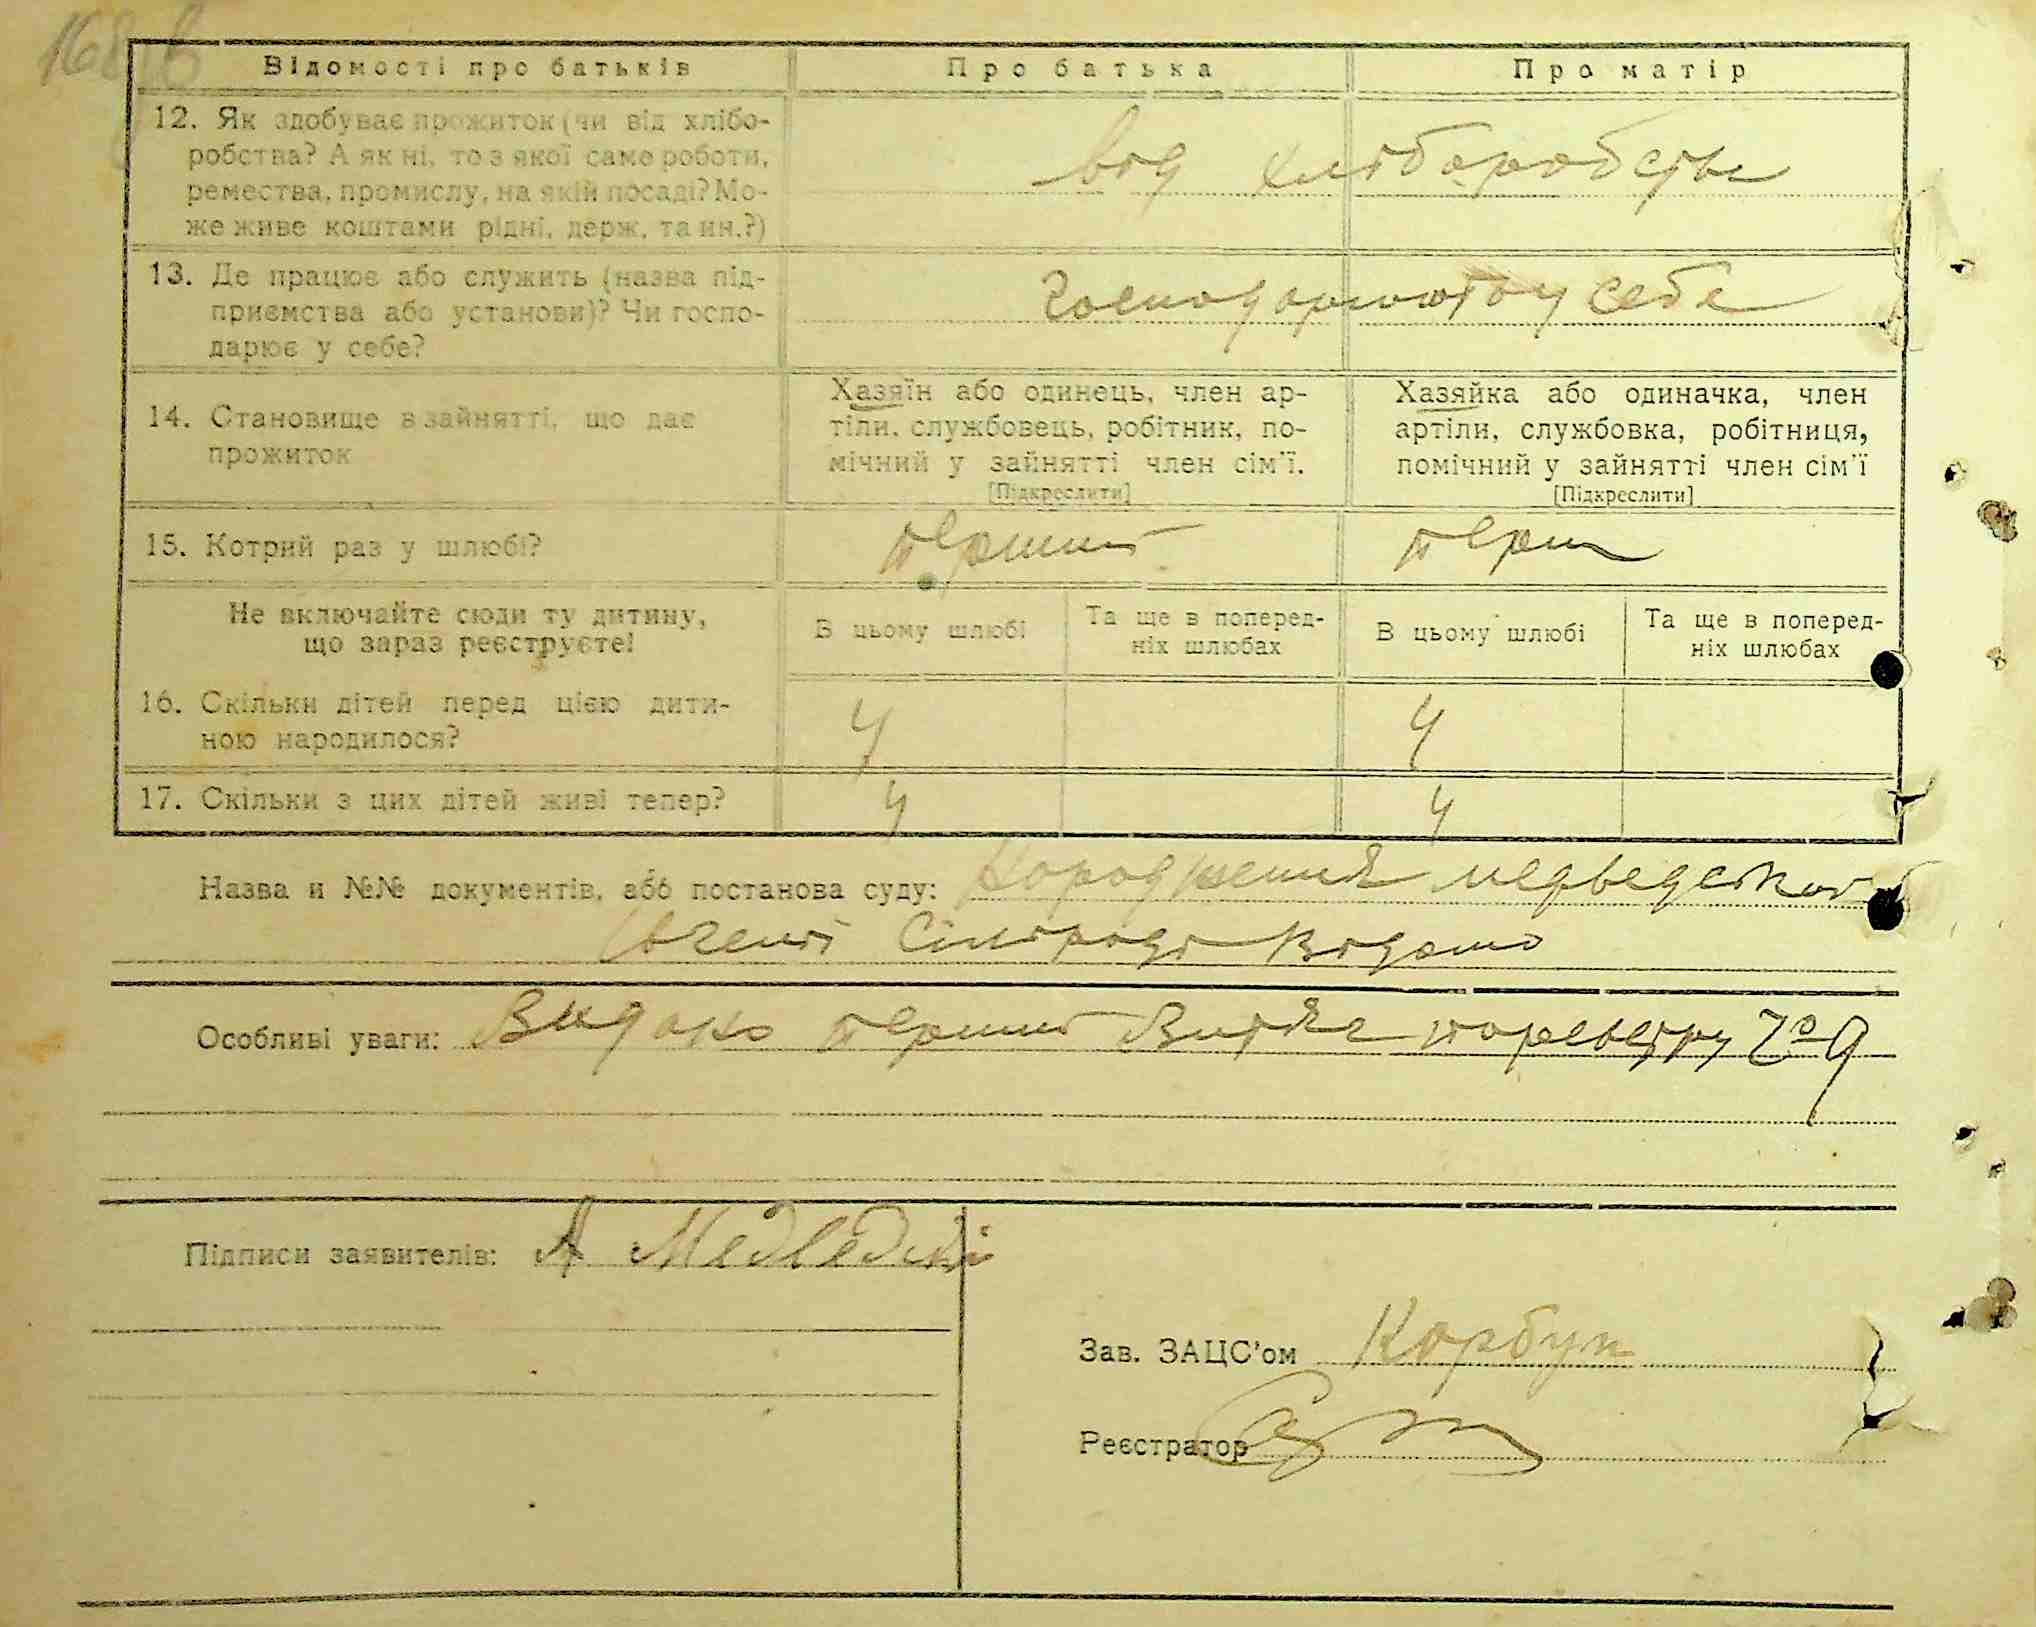 Відомості про батьків Про батька Про матір
12. Як здобуває прожиток (чи від хлібо-
робства? А як ні, то з якої саме роботи,
ремества, промислу, на якій посаді? Мо-
же живе коштами рідні, держ. та ин.?)
від хліборобства
13. Де працює або служить (назва під-
приємства або установи)? Чи госпо-
дарює у себе?
Господарюють у себе
14. Становище в зайнятті, що дає
прожиток
Хазяїн або одинець, член ар-
тіли, службовець, робітник, по-
мічний у зайнятті член сім'ї.
[Підкреслити]
Хазяйка або одиначка, член
артіли, службовка, робітниця,
помічний у зайнятті член сім'ї
[Підкреслити]
15. Котрий раз у шлюбі? перший перш
Не включайте сюди ту дитину,
що зараз реєструєте!
В цьому шлюбі
Та ще в поперед-
ніх шлюбах
В цьому шлюбі
Та ще в поперед-
ніх шлюбах
16. Скільки дітей перед цією дити-
ною народилося?
4 4
17. Скільки з цих дітей живі тепер? 4 4
Назва и №№ документів, або постанова суду: Народження
Сільради Відомо
Особливі уваги: Видано перший Витяг
Підписи заявителів: А Медведскі
Зав. ЗАЦС'ом Корбут
Реєстратор